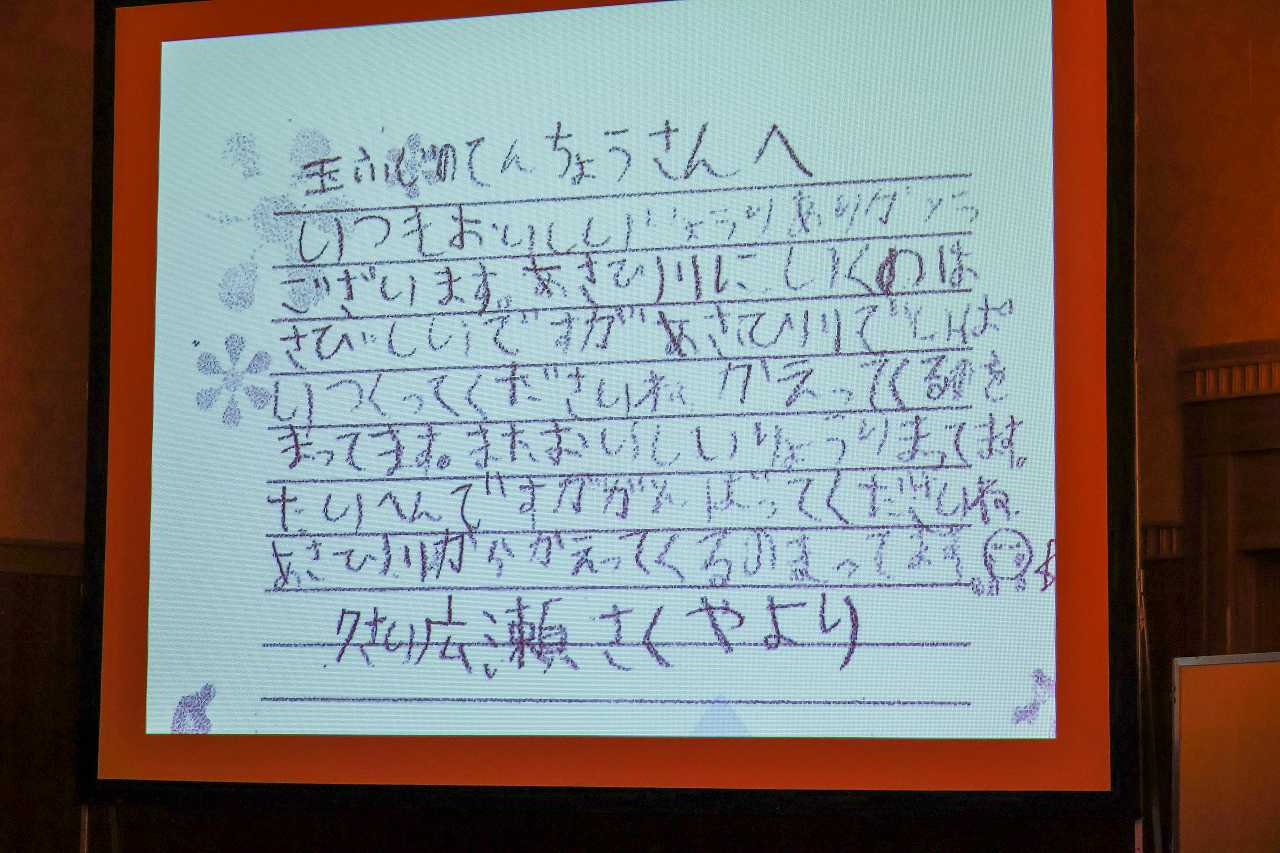 玉ふじのてんちょうさんへ
いつもおいしいりょうりありがとう
ございます。あさひ川にいくのは
さびしいですがあさひ川でしんぱ
いつくってくださいね かえってくるのを
まってます。またおいしいりょうりまってます。
たいへんですががんばってくださいね
あさひ川からかえってくるのまってます
7さい広瀬さくやより